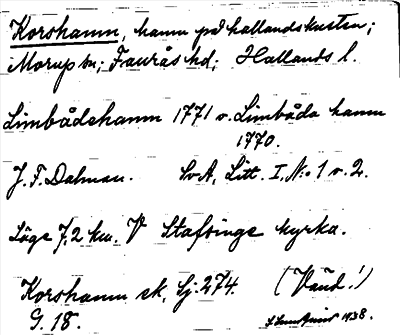 Korshamn, hamn på hallandskusten;
Morup sn; Faurås hd; Hallands l.
Limbådshamn 1771 o. Limbåda hamn
1770.
J. F. Dalman. SvA, Litt. I, No 1 o. 2.
Läge 7,2 km. V Stafsinge kyrka.
Korshamn sk. Sj. 274. (Vänd!)
G. 18. 1938.